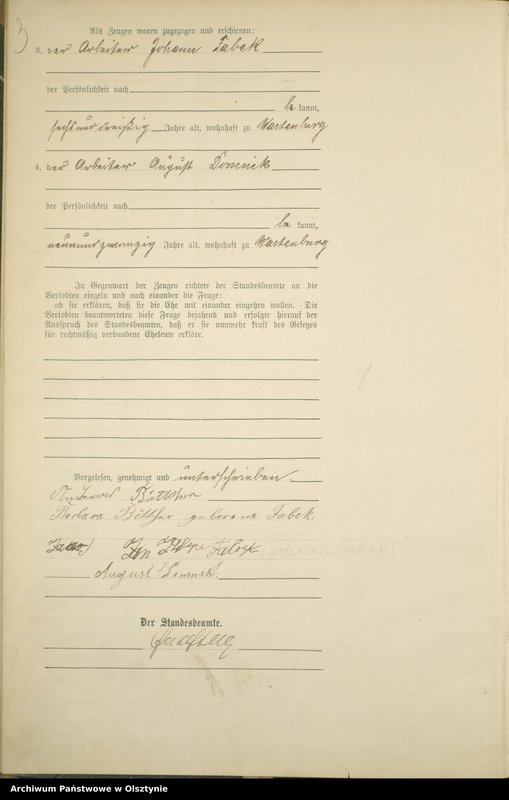 3
Als Zeugen waren zugezogen und erschienen:
3. der Arbeiter Johann Tabek
der Persönlichkeit nach
be kannt,
sechsunddreißig Jahre alt, wohnhaft zu Wartenburg
4. der Arbeiter August Dominik
der Persönlichkeit nach
be kannt,
neunundzwanzig Jahre alt, wohnhaft zu Wartenburg
In Gegenwart der Zeugen richtete der Standesbeamte an die
Verlobten einzeln und nach einander die Frage:
ob sie erklären, daß sie die Ehe mit einander eingehen wollen. Die
Verlobten beantworteten diese Frage bejahend und erfolgte hierauf der
Ausspruch des Standesbeamten, daß er sie nunmehr kraft des Gesetzes
für rechtmäßig verbundene Eheleute erkläre.
Vorgelesen, genehmigt und unterschrieben
Andreas Böttcher
Barbara Böttcher geborene Tabek
August Dominik.
Der Standesbeamte.
Archiwum Państwowe w Olsztynie